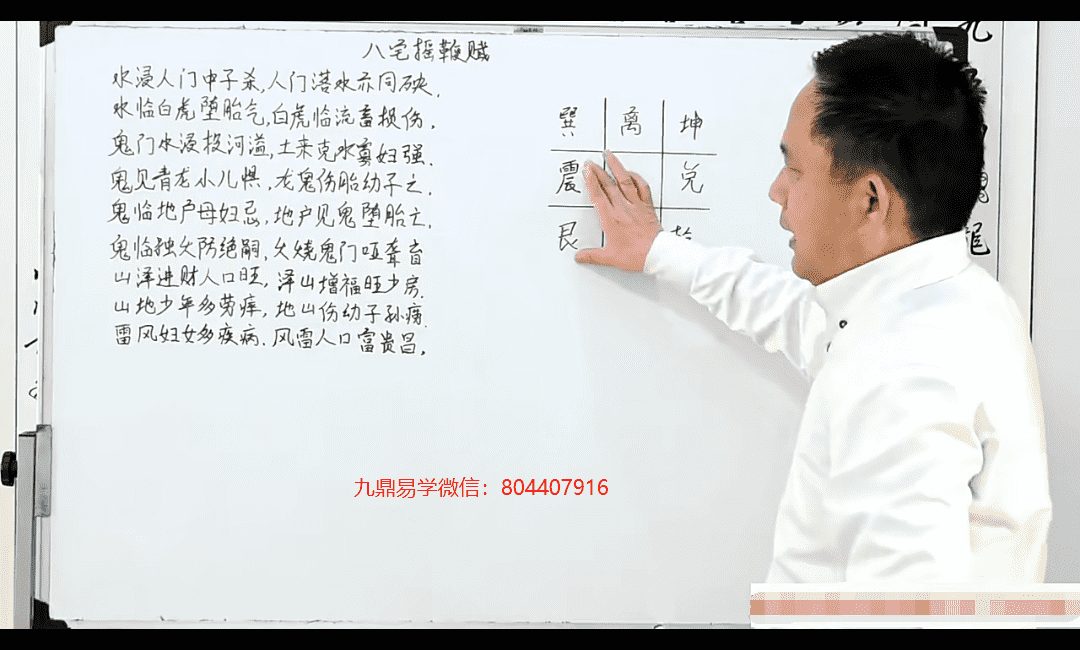 八宅摇鞭贼
水浸人门中子杀,人门落水亦同殃.
水临白虎堕胎气,白虎临流畜损伤.
鬼门水浸投河溢,土来克水寡妇强.
鬼见青龙小儿惧,龙鬼伤胎幼子亡.
鬼临地户母妇忌,地户见鬼堕胎亡.
鬼临独火防绝嗣,火烧鬼门哑聋盲
山泽进财人口旺,泽山增福旺少房.
山地少年多劳瘁,地山伤幼子孙殇.
雷风妇女多疾病.风雷人口富贵昌.
巽 离 坤
震 兑
艮
九鼎易学微信：804407916